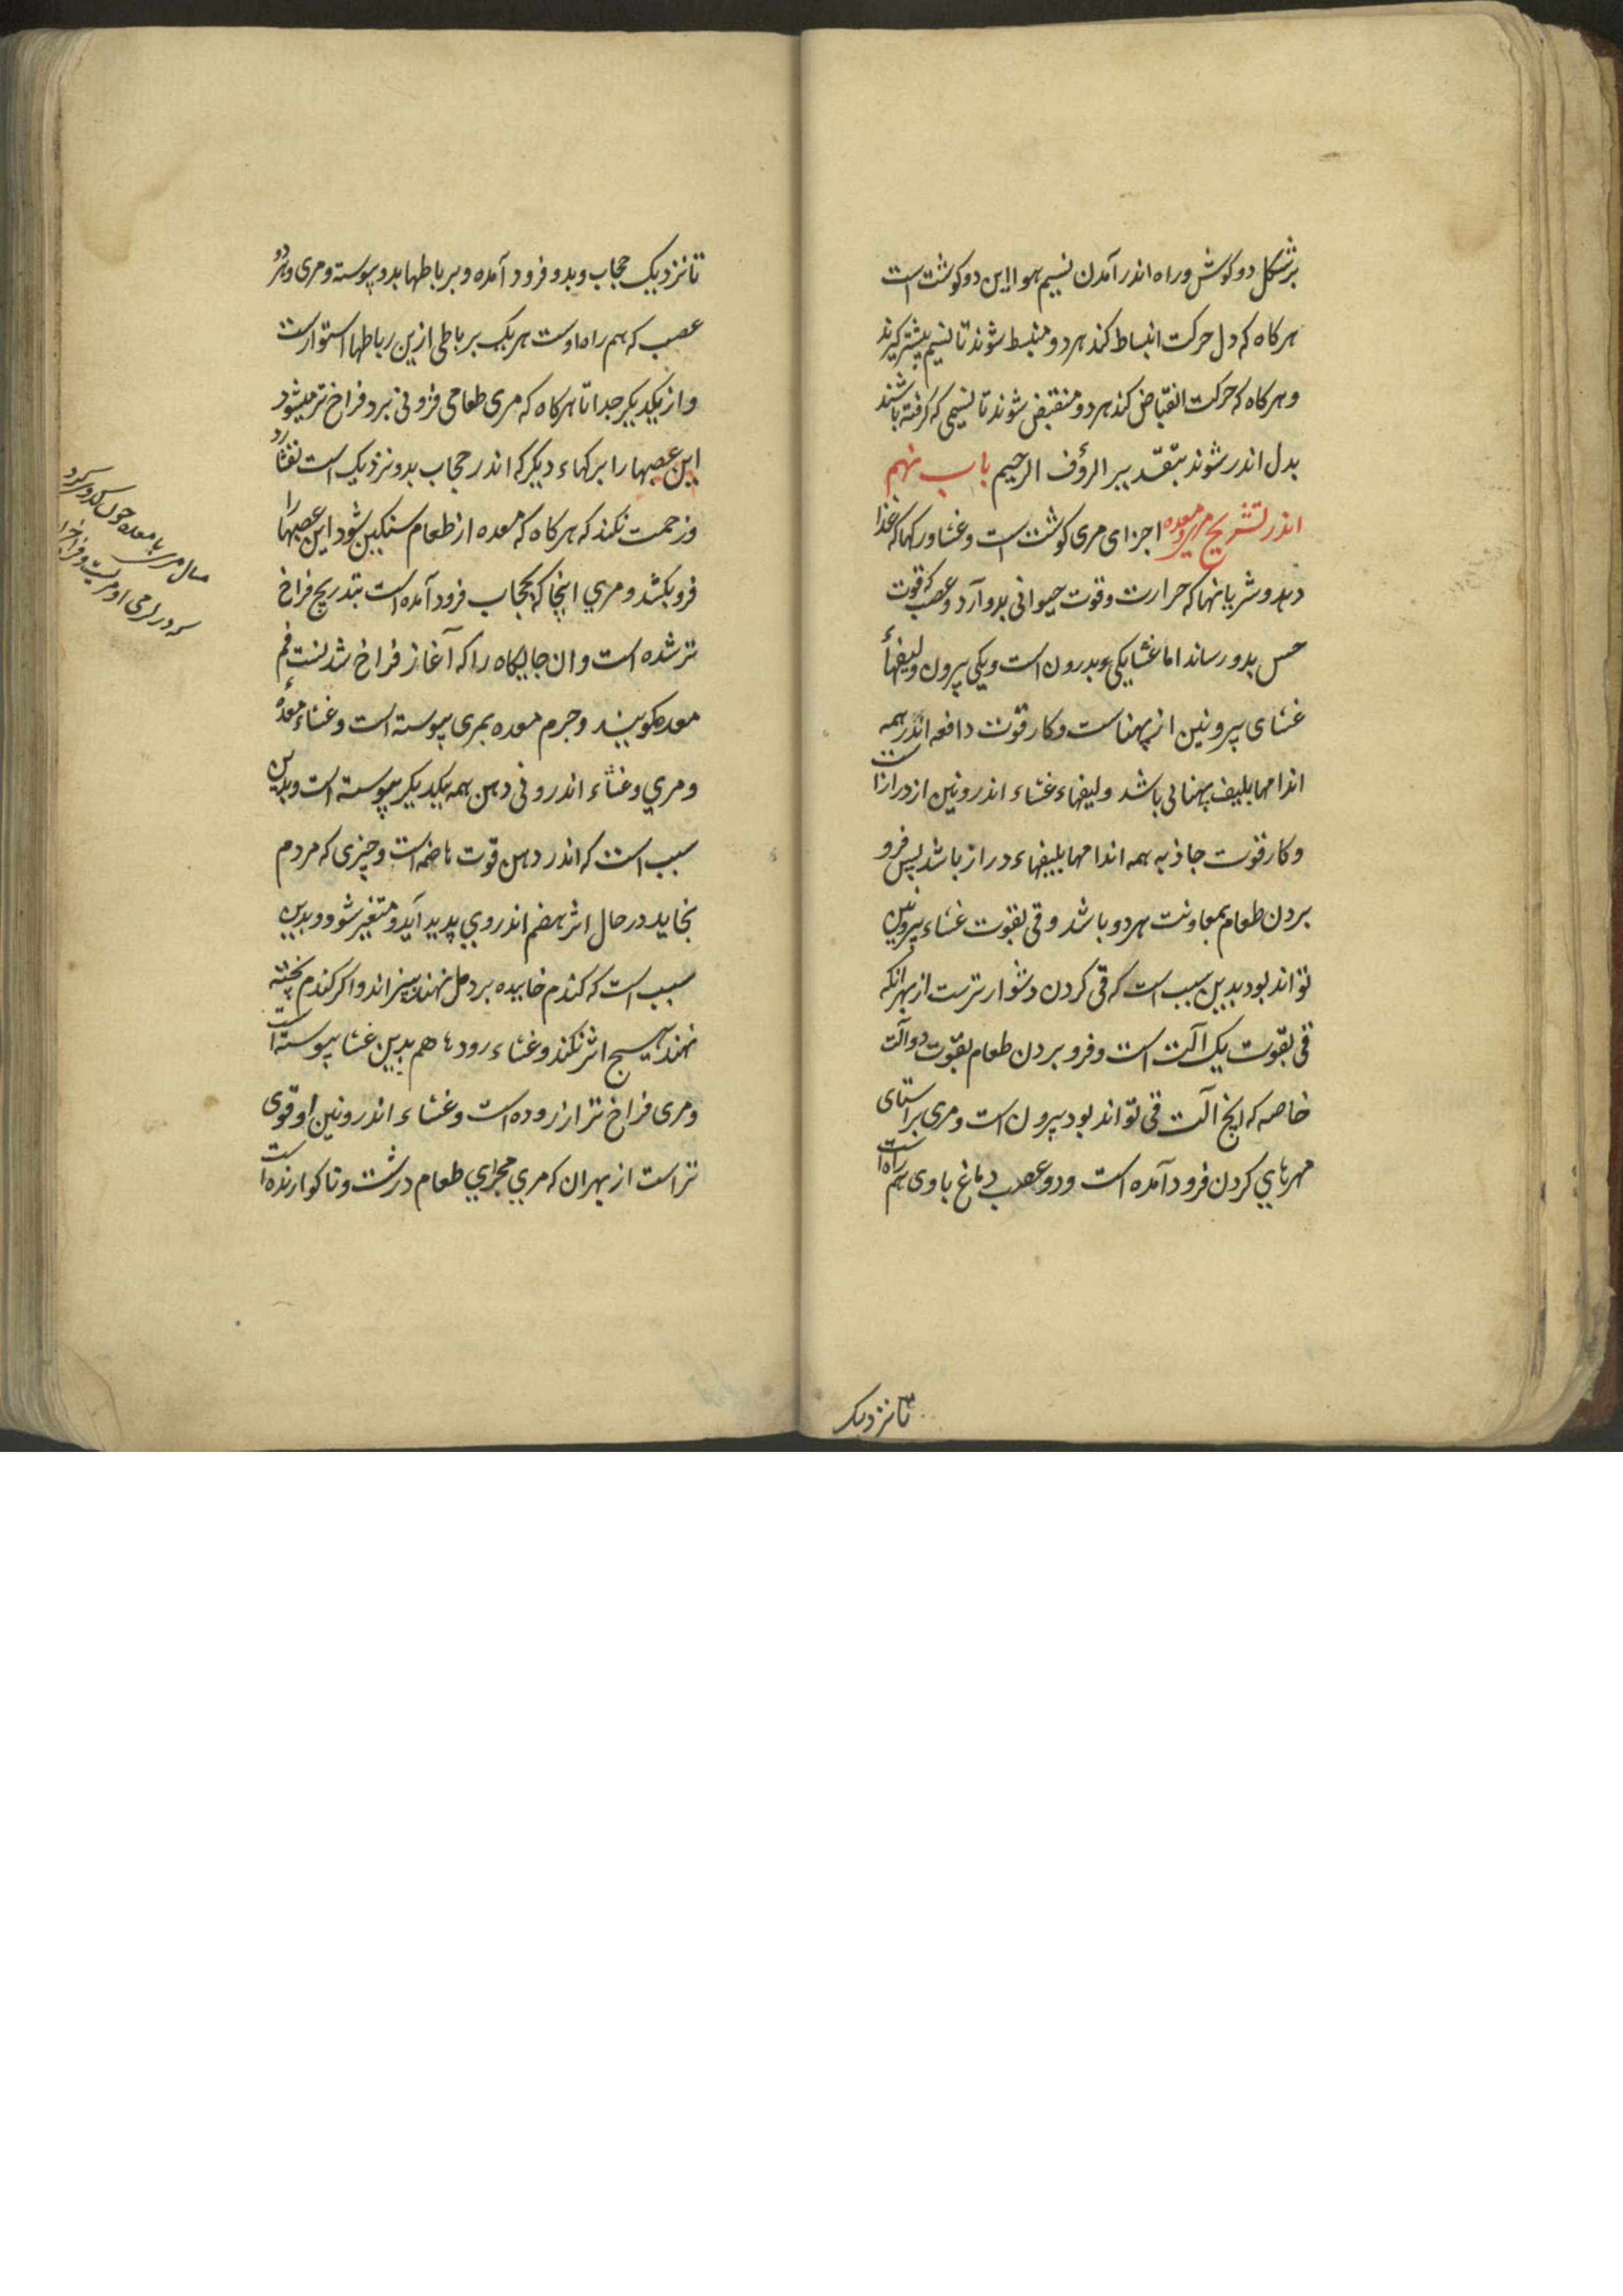 برشکل دو کوش و راه اندر آمدن نسیم هوا این دو کوشت است
هرکاه که دل حرکت انبساط کند هر دو منبسط شوند تا نسیم بیشتر کیرند
و هرکاه که حرکت انقباض کند هر دو منقبض شوند تا نسیمی که کرفته باشند
بدل اندر شوند بتقدیر الرؤف الرحیم باب نهم
اندر تشریح مری و معده اجزای مری کوشت است و غشا و رکها که غذا
دهد و شریانها که حرارت و قوت حیوانی بدو آرد و عصب که قوت
حس بدو رساند اما غشا یکی بدرون است و یکی بیرون و لیفهاء
غشای بیرونین از پهناست و کار قوت دافعه اندر همه
اندامها بلیف پهنایی باشد و لیفهاء غشاء اندرونین از درازاست
و کار قوت جاذبه همه اندامها بلیفهاء دراز باشد پس فرو
بردن طعام بمعاونت هر دو باشد و قی بقوت غشاء بیرونین
تواند بود بدین سبب است که قی کردن دشوارترست از بهر انکه
قی بقوت یک آلت است و فرو بردن طعام بقوت دو آلت
خاصه که انچ آلت قی تواند بود بیرون است و مری براستای
مهرهاي کردن فرود آمده است و دو عصب دماغ با وی هم راه است
تا نزدیک
تا نزدیک حجاب و بدو فرود آمده و برباطها بدو پیوسته و مری و هر دو
عصب که هم راه اوست هر یک برباطی ازین رباطها استوارست
و از یکدیکر جدا تا هرکاه که مری طعامی فزونی برد فراخ تر میشود
این عصبها را برکهاء دیکر که اندر حجاب بدو نزدیک است نفشارد
و زحمت نکند که هرکاه که معده از طعام سنکین شود این عصبها را
فرو بکشد و مري اینجا که بحجاب فرود آمده است بتدریج فراخ
تر شده است و ان جایکاه را که آغاز فراخ شدنست فم
معده کویند و جرم معده بمری پیوسته است و غشاء معده
و مري و غشاء اندرونی دهن همه یکدیکر پیوسته است و بدین
سبب است که اندر دهن قوت هاضمه است و چیزی که مردم
بخاید در حال اثر هضم اندر وي پدید آید و متغیر شود و بدین
سبب است که کندم خاییده بر دمل نهند بپزاند و اکر کندم پخته
نهند هیچ اثر نکند و غشاء رودها هم بدین غشا پیوسته است
و مری فراخ تر از روده است و غشاء اندرونین او قوی
تر است از بهر ان که مري مجراي طعام درشت و ناکوارنده است
مری با معده چون کدو